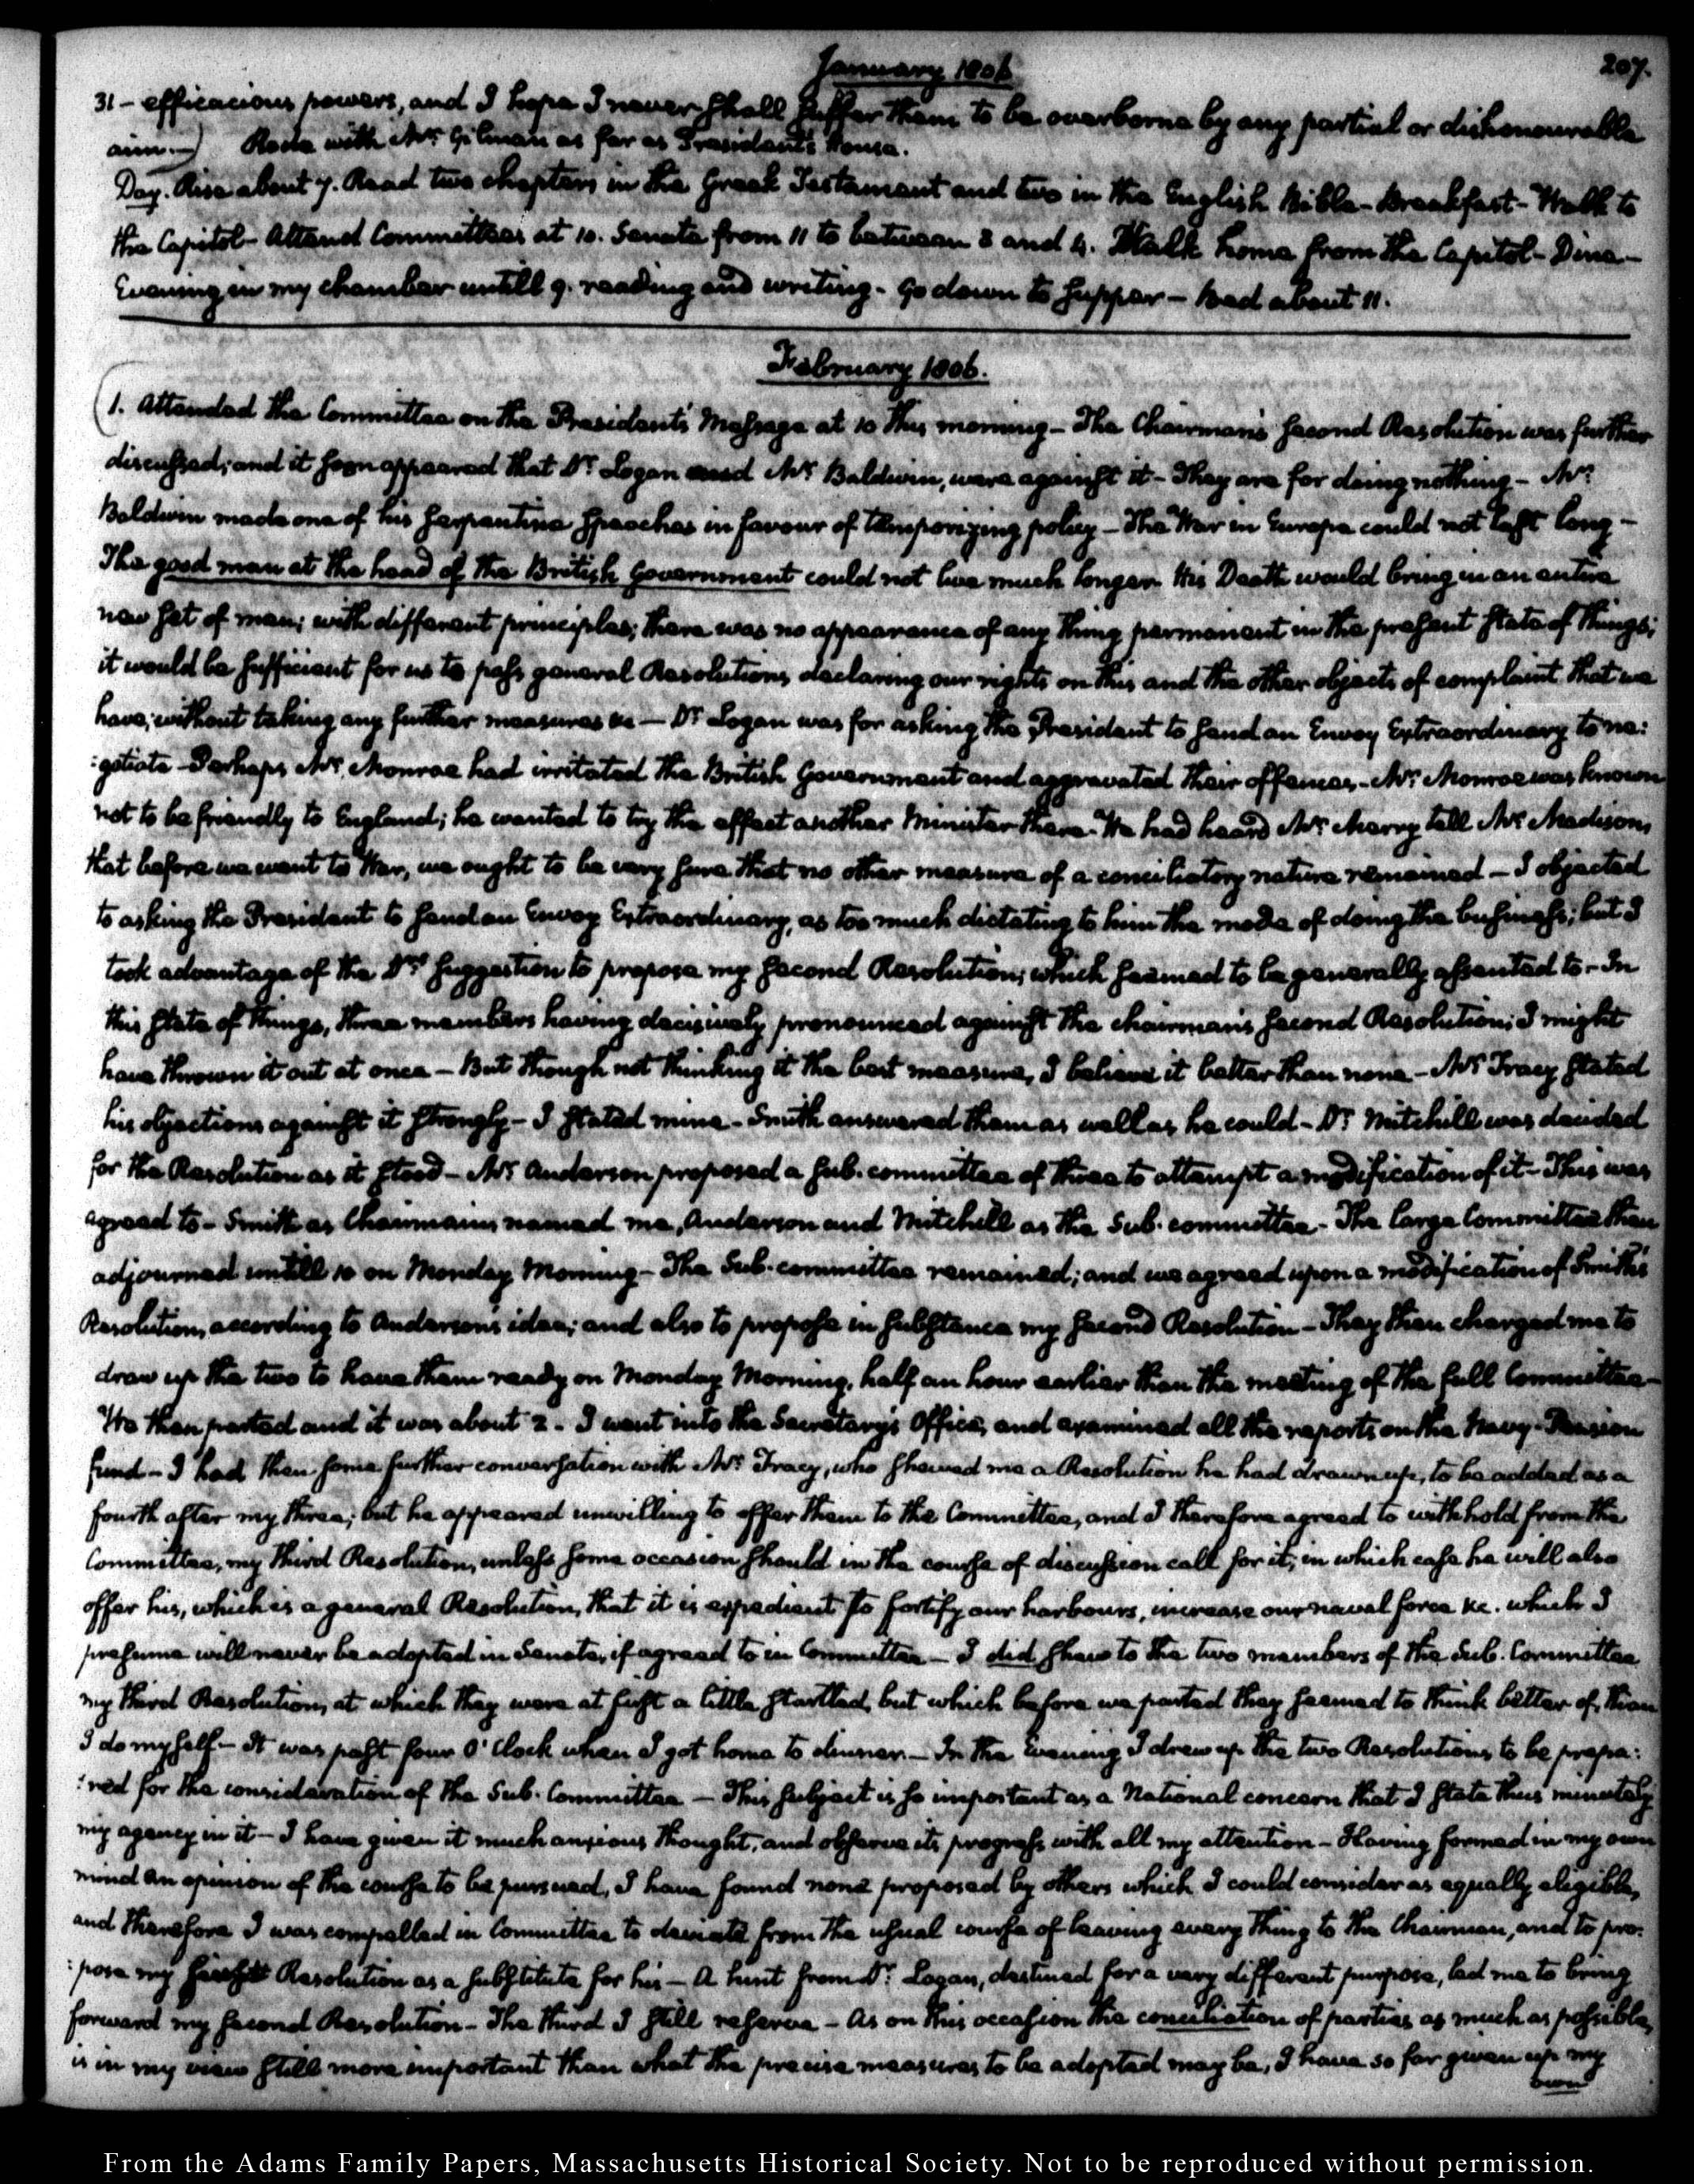 January 1806
207.
31 - efficacious powers, and I hope I never shall suffer them to be overborne by any partial or dishonourable
aim.—) Rode with Mr: Gilman as far as President's house.
Day. Rise about 7. Read two chapters in the Greek Testament and two in the English Bible - Breakfast - Walk to
the Capitol - Attend Committees at 10. Senate from 11 to between 3 and 4. Walk home from the Capitol - Dine -
Evening in my chamber untill 9. reading and writing - Go down to supper - Bed about 11.
February 1806.
(1. Attended the Committee on the President's Message at 10 this morning - The Chairman's second Resolution was further
discussed; and it soon appeared that Dr: Logan and Mr: Baldwin, were against it - They are for doing nothing - Mr:
Baldwin made one of his serpentine speeches in favour of temporizing policy - The War in Europe could not last long -
The good man at the head of the British Government could not live much longer. His Death would bring in an entire
new set of men; with different principles; there was no appearance of any thing permanent in the present state of things;
it would be sufficient for us to pass general Resolutions, declaring our rights on this and the other objects of complaint that we
have; without taking any further measures &c — Dr: Logan was for asking the President to send an Envoy Extraordinary to ne:
:gotiate - Perhaps Mr: Monroe had irritated the British Government and aggravated their offences - Mr: Monroe was known
not to be friendly to England; he wanted to try the effect another Minister there. He had heard Mr: Merry tell Mr: Madison,
that before we went to War, we ought to be very sure that no other measure of a conciliatory nature remained - I objected
to asking the President to send an Envoy Extraordinary, as too much dictating to him the mode of doing the business; but I
took advantage of the Dr:'s suggestion to propose my second Resolution; which seemed to be generally assented to - In
this state of things, three members having decisively pronounced against the chairman's second Resolution; I might
have thrown it out at once - But though not thinking it the best measure, I believe it better than none - Mr: Tracy stated
his objections against it strongly - I stated mine - Smith answered them as well as he could - Dr: Mitchill was decided
for the Resolution as it stood - Mr: Anderson proposed a sub-committee of three to attempt a modification of it - This was
agreed to - Smith as Chairman, named me, Anderson and Mitchill as the Sub-committee - The large Committee then
adjourned untill 10 on Monday Morning - The Sub-committee remained; and we agreed upon a modification of Smith's
Resolution, according to Anderson's idea; and also to propose in substance my second Resolution - They then charged me to
draw up the two to have them ready on Monday Morning, half an hour earlier than the meeting of the full Committee -
We then parted and it was about 2 - I went into the Secretary's Office, and examined all the reports on the Navy-Pension
fund - I had then some further conversation with Mr: Tracy, who shewed me a Resolution he had drawn up, to be added as a
fourth after my three; but he appeared unwilling to offer them to the Committee, and I therefore agreed to withhold from the
Committee, my third Resolution, unless some occasion should in the course of discussion call for it; in which case he will also
offer his, which is a general Resolution, that it is expedient to fortify our harbours, increase our naval force &c. which I
presume will never be adopted in Senate, if agreed to in Committee - I did shew to the two members of the Sub-Committee
my third Resolution, at which they were at first a little startled, but which before we parted they seemed to think better of, than
I do myself - It was past four O'Clock when I got home to dinner - In the Evening I drew up the two Resolutions to be prepa:
:red for the consideration of the Sub-Committee - This subject is so important as a National concern that I state thus minutely
my agency in it - I have given it much anxious thought, and observe its progress with all my attention - Having formed in my own
mind an opinion of the course to be pursued, I have found none proposed by others which I could consider as equally eligible,
and therefore I was compelled in Committee to deviate from the usual course of leaving every thing to the Chairman, and to pro:
:pose my first Resolution as a substitute for his - A hint from Dr: Logan, destined for a very different purpose, led me to bring
forward my second Resolution - The third I still reserve - As on this occasion the conciliation of parties as much as possible,
is in my view still more important than what the precise measures to be adopted may be, I have so far given up my
own
From the Adams Family Papers, Massachusetts Historical Society. Not to be reproduced without permission.